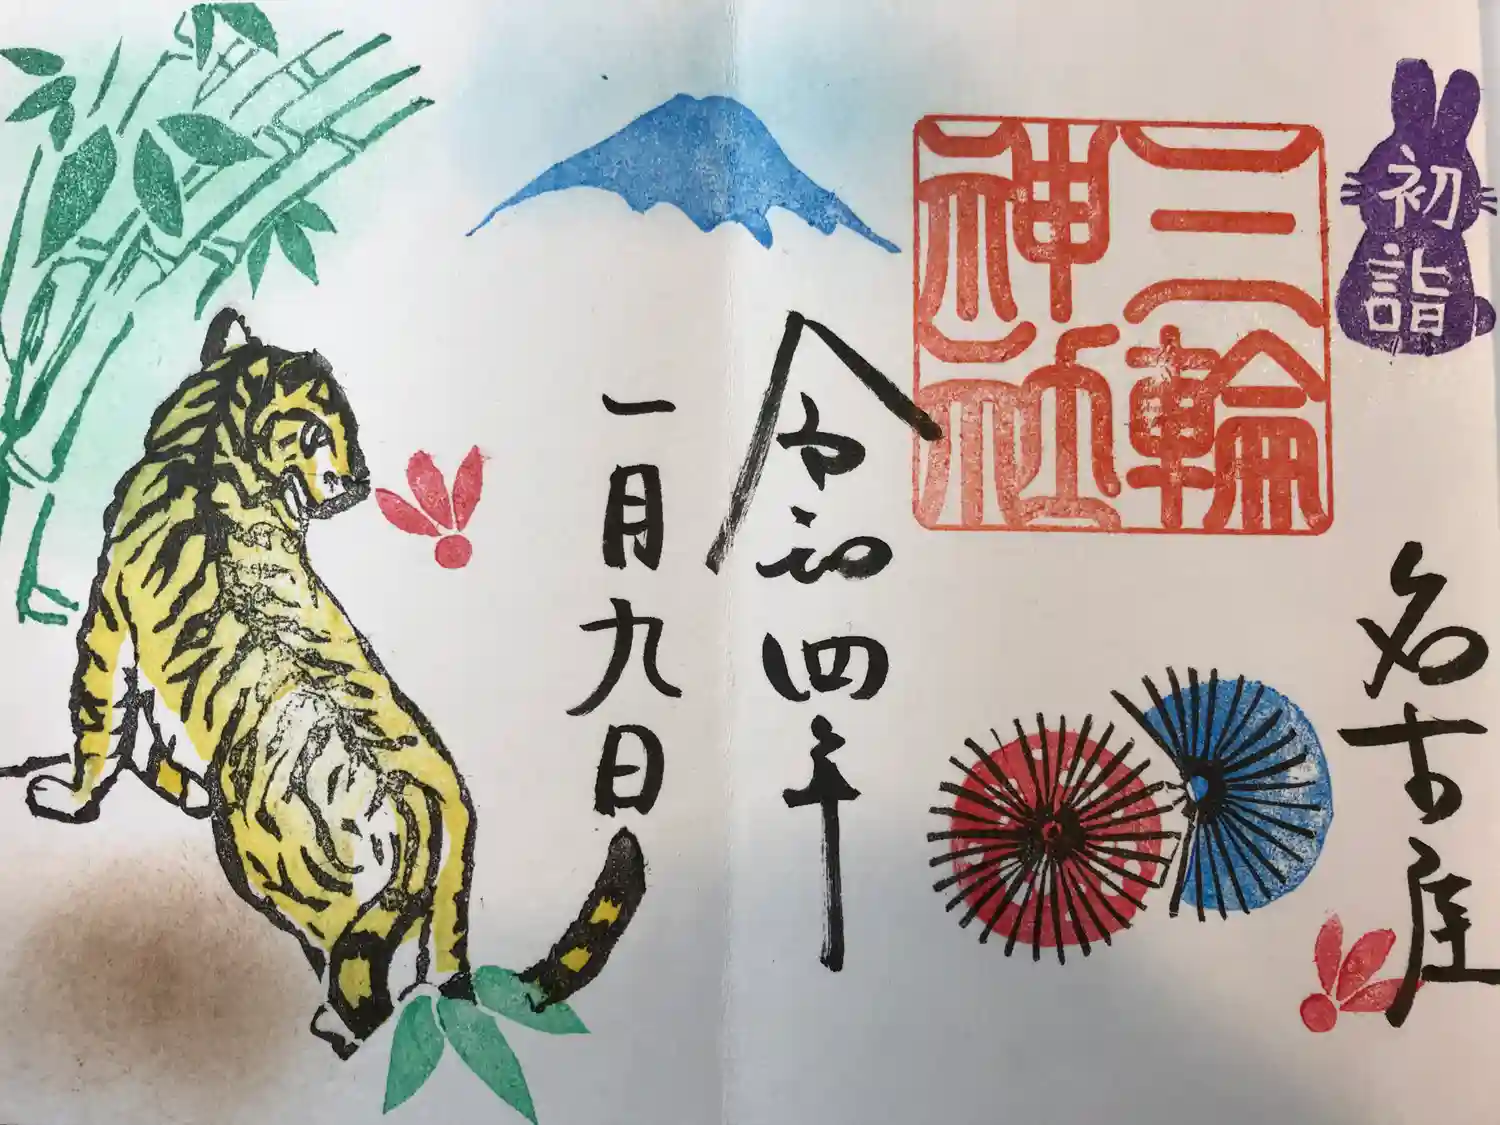 初詣
三輪
神社
名古屋
令和四年
一月九日